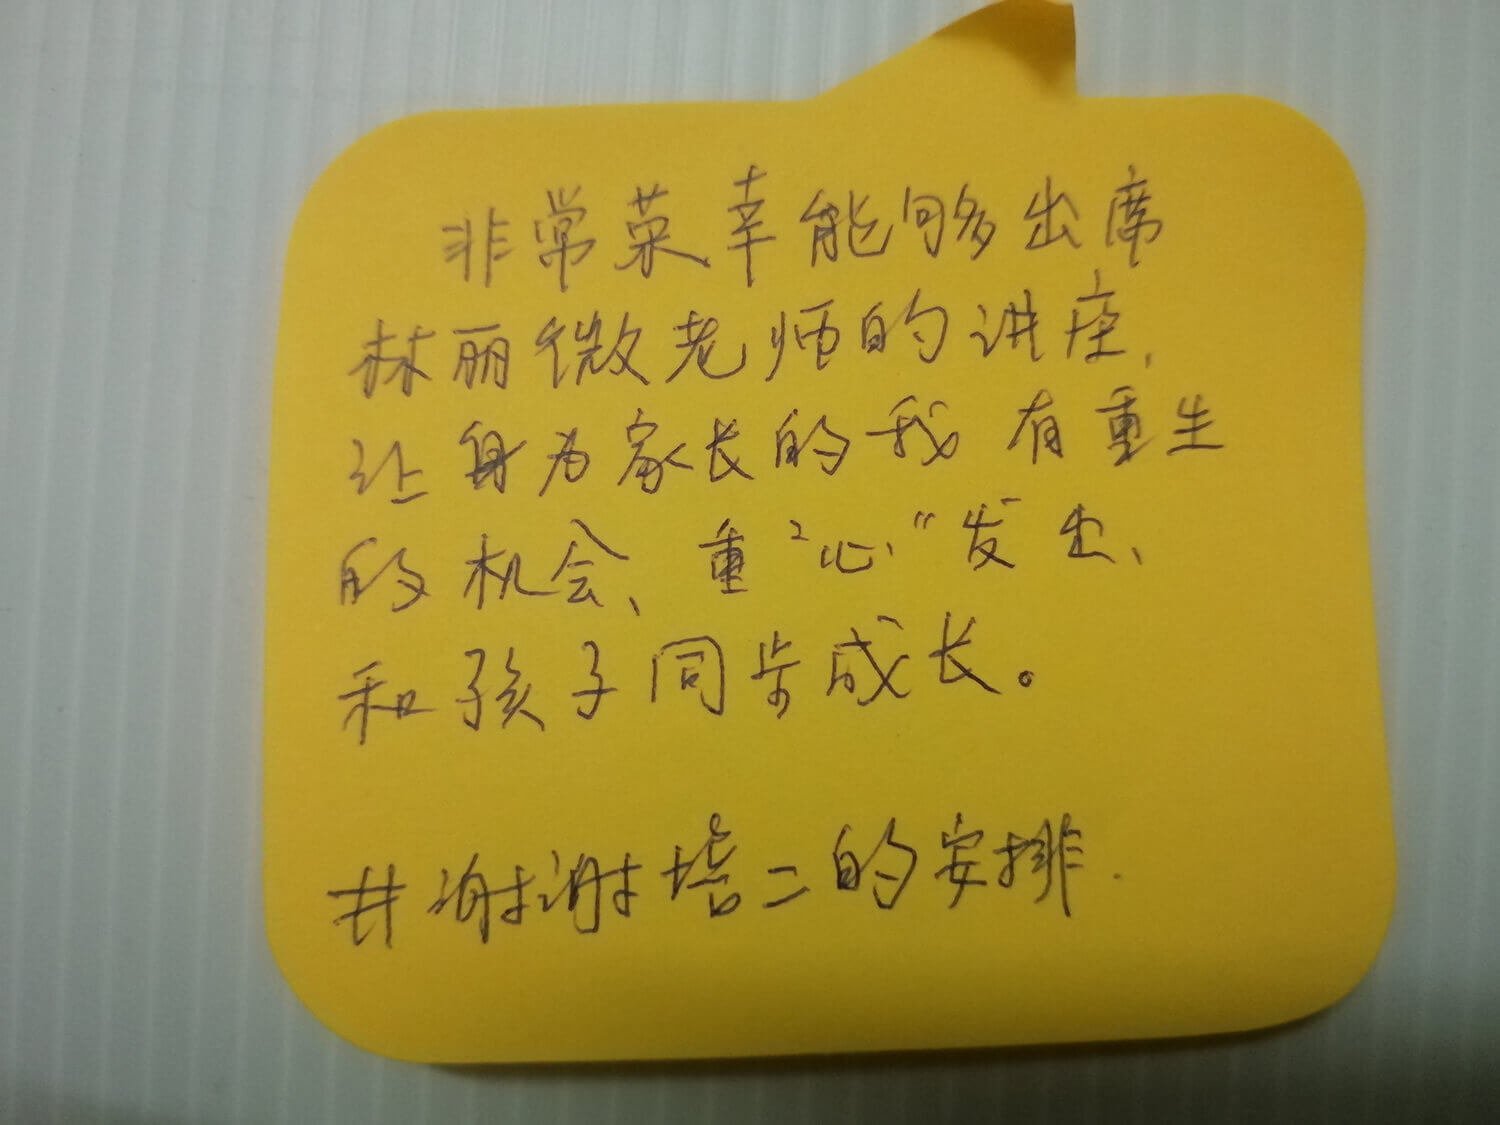 非常荣幸能够出席
林丽微老师的讲座,
让身为家长的我有重生
的机会、重"心"发出、
和孩子同步成长。
#谢谢培二的安排.